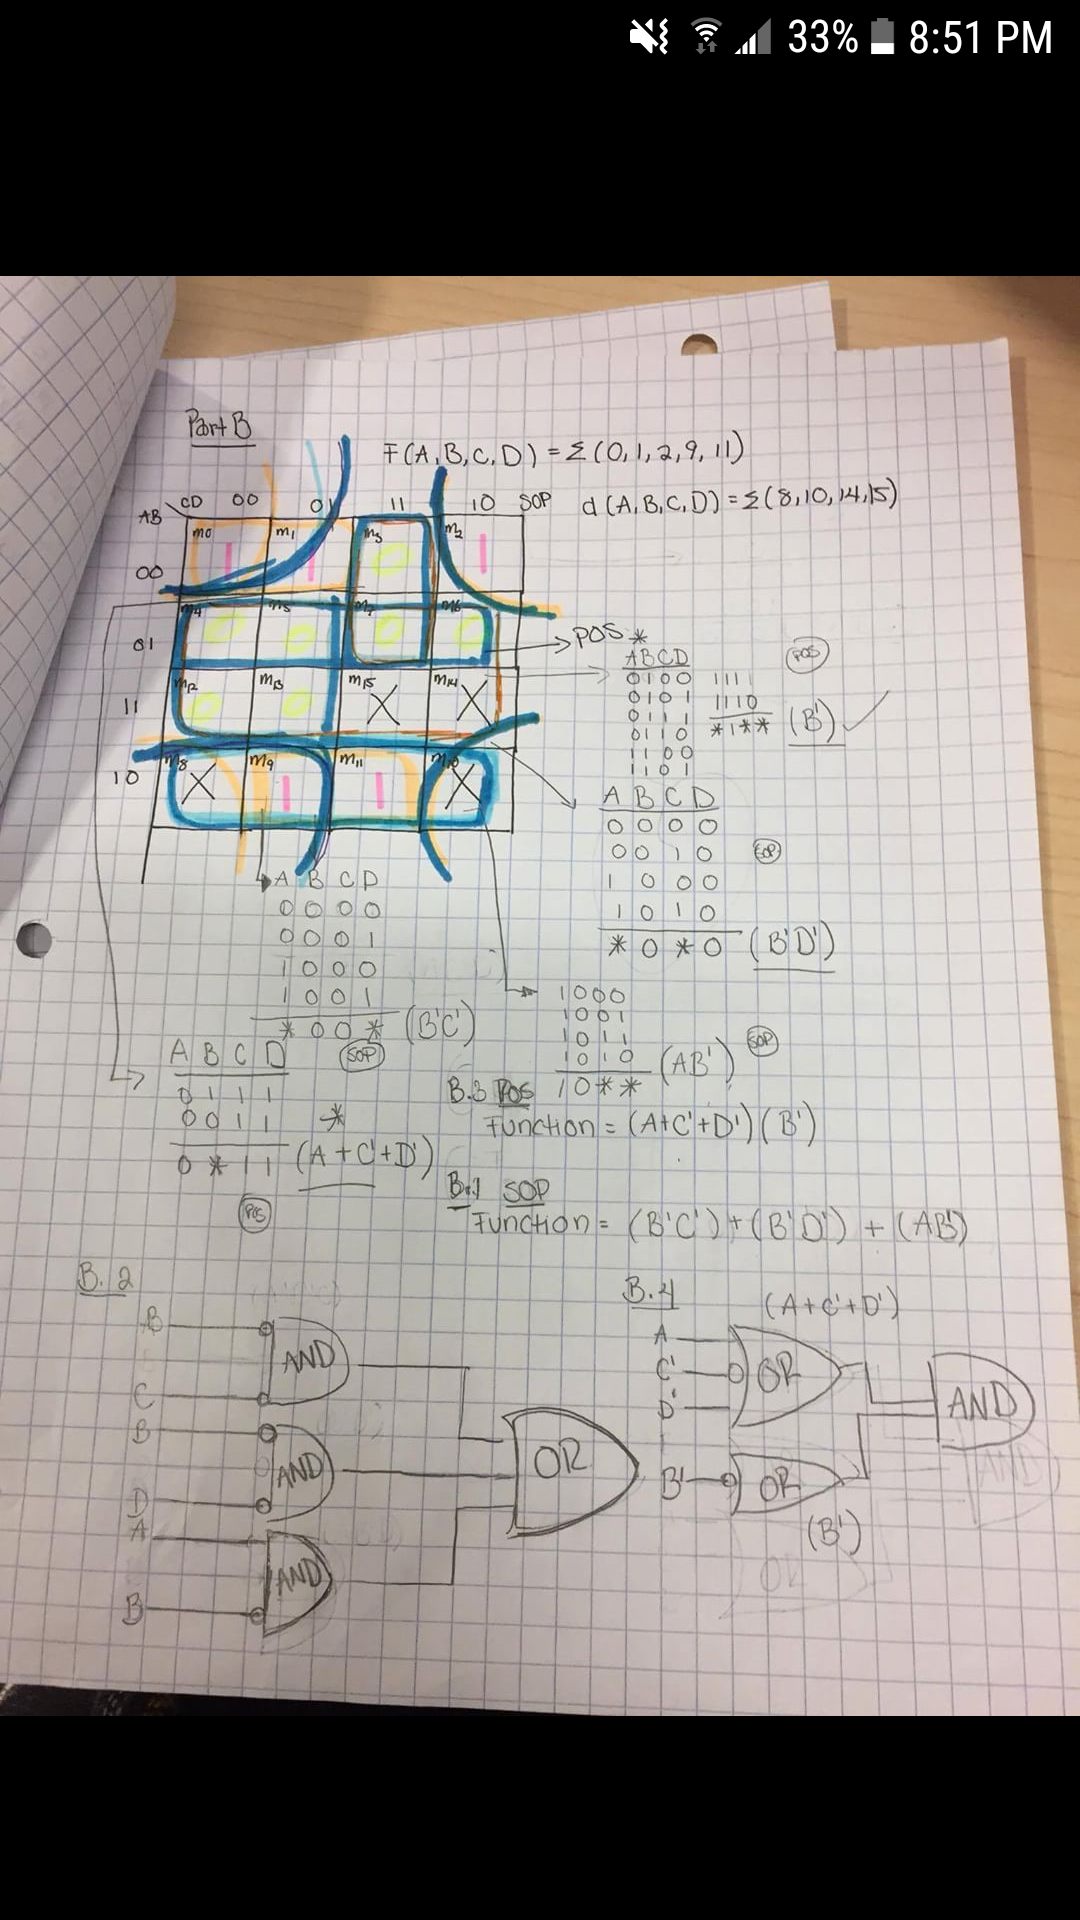 33% 8:51 PM
Part B
F(A,B,C,D) = Σ(0,1,2,9,11)
d(A,B,C,D) = Σ(8,10,14,15)
AB CD 00 01 11 10 SOP
00 m0 1 m1 1 m3 0 m2 1
01 m4 0 m5 0 m7 0 m6 0
11 m12 0 m13 0 m15 X m14 X
10 m8 X m9 1 m11 1 m10 X
POS *
ABCD POS
0100 1111
0101 1110
0111 *1** (B')
0110
1100
1101
A B C D
0 0 0 0
0 0 1 0 SOP
1 0 0 0
1 0 1 0
* 0 * 0 (B'D')
A B C D
0 0 0 0
0 0 0 1
1 0 0 0
1 0 0 1
* 0 0 * (B'C')
SOP
1000
1001
1011
1010
10** (AB') SOP
A B C D
0 1 1 1
0 0 1 1 *
0 * 1 1 (A+C'+D')
POS
B.3 POS
Function = (A+C'+D')(B')
B.1 SOP
Function = (B'C')+(B'D') + (AB')
B.2
B
AND
C
B
AND
D
A
AND
B
OR
B.4
(A+C'+D')
A
C'
D'
OR
B'
OR
(B')
AND
AND
OR